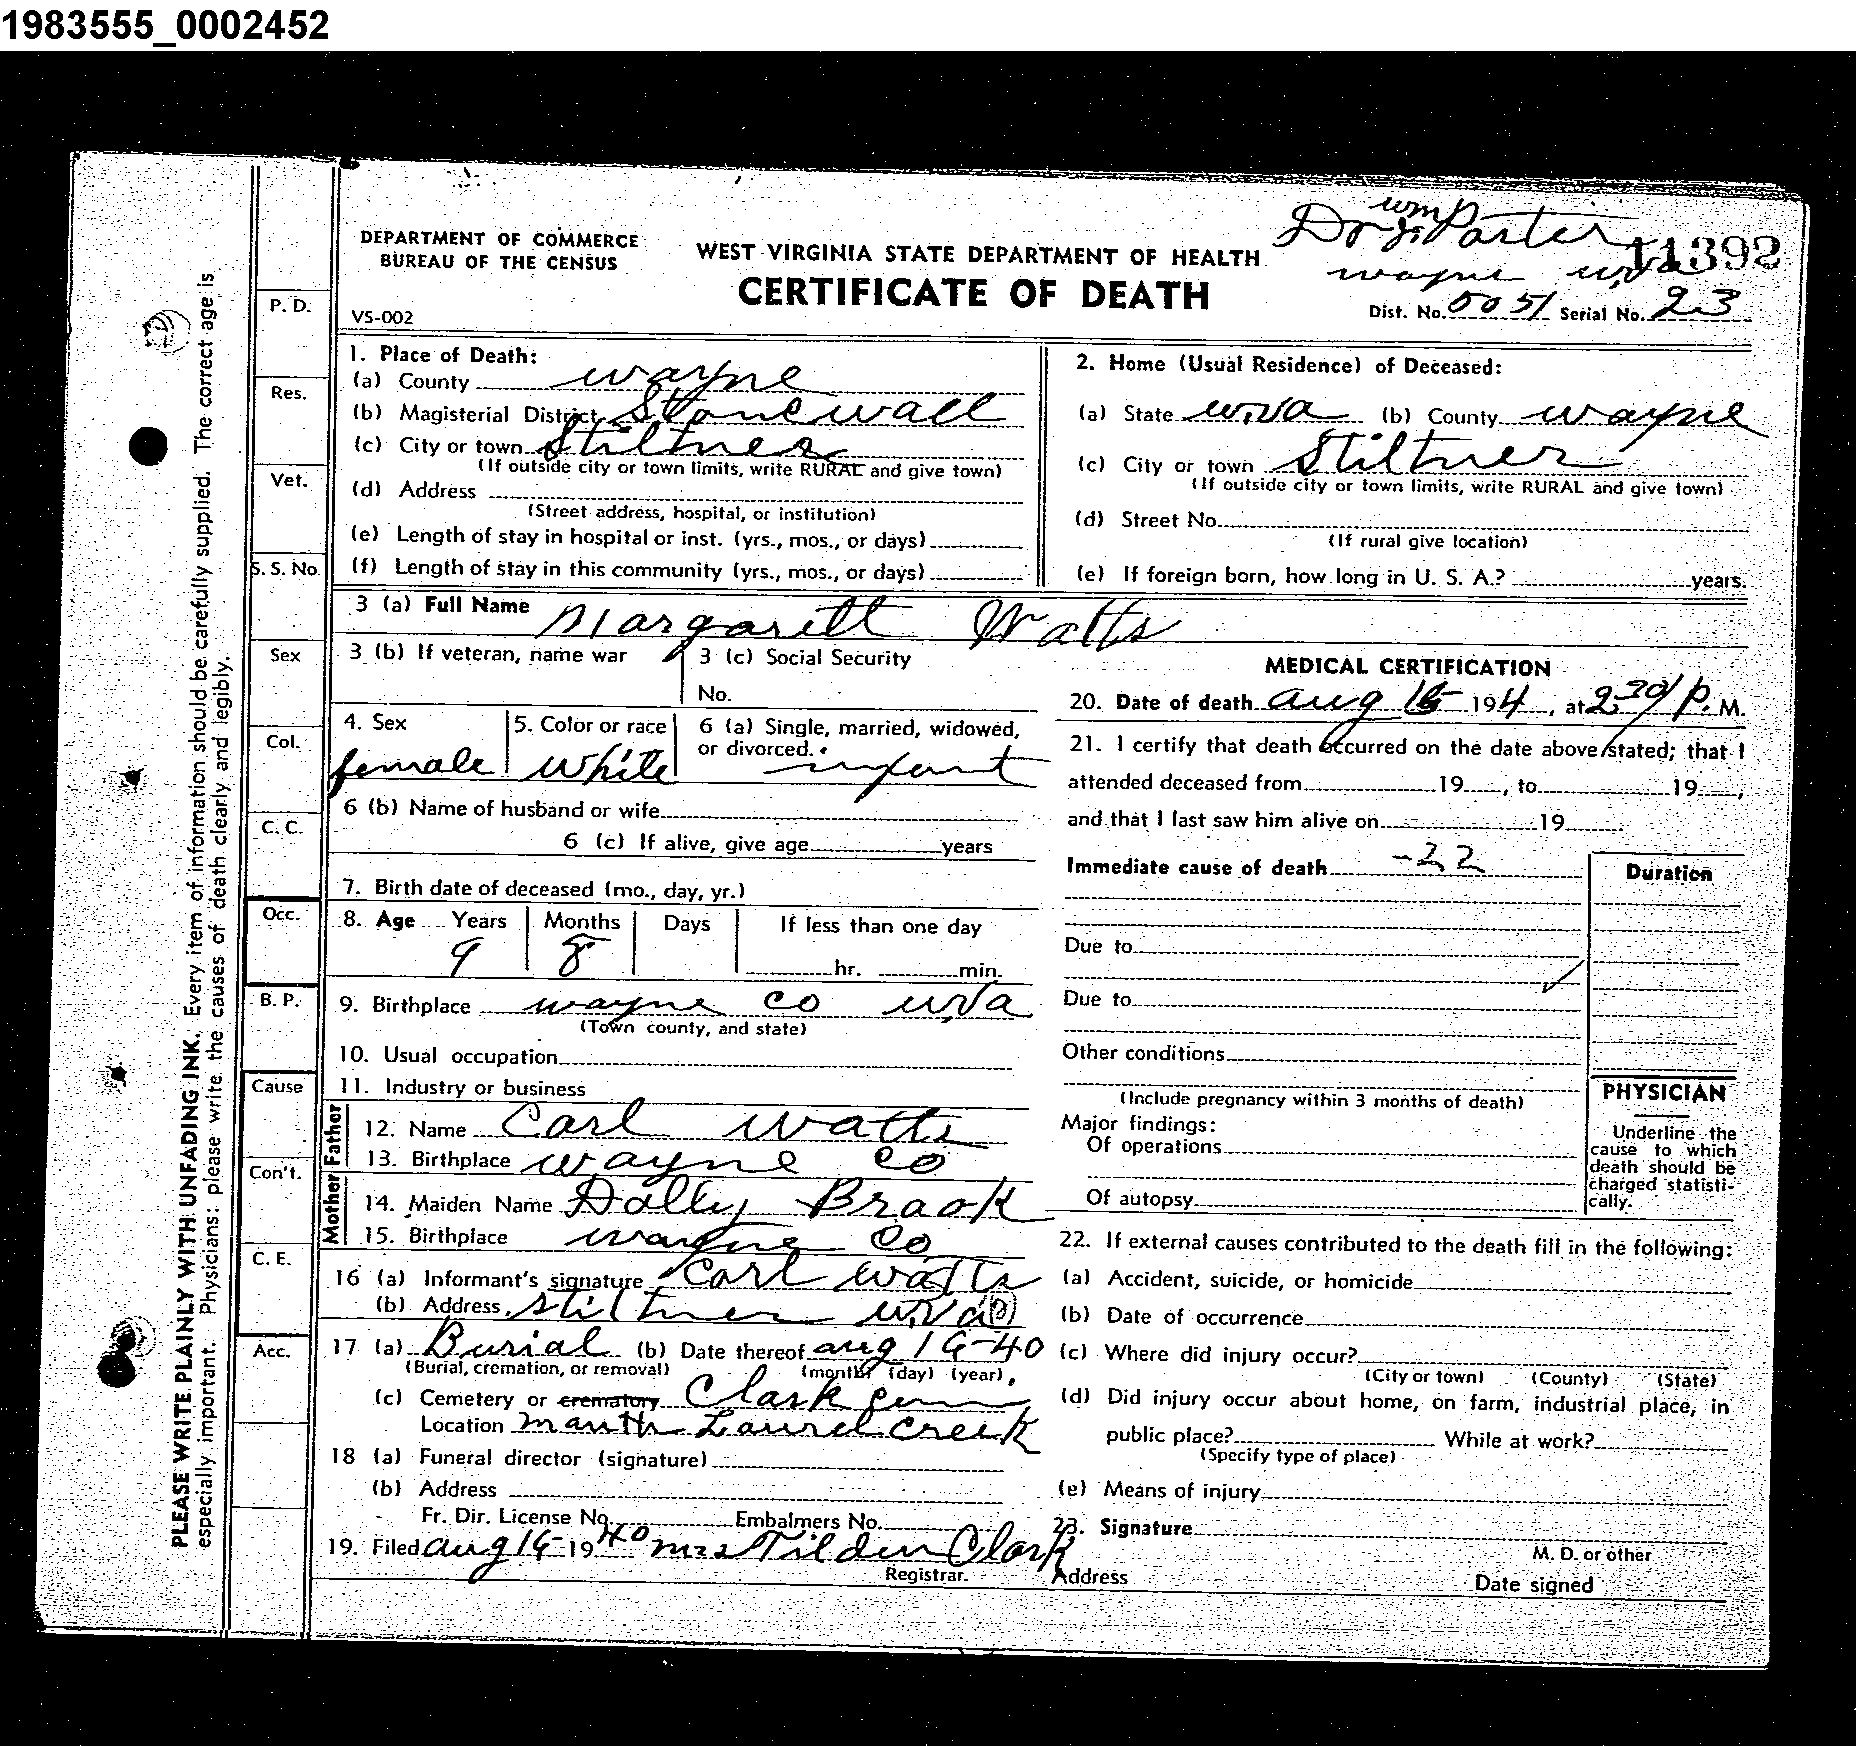 1983555_0002452
Dr. wm Porter
wayne w,va
11392
DEPARTMENT OF COMMERCE
BUREAU OF THE CENSUS
WEST VIRGINIA STATE DEPARTMENT OF HEALTH
CERTIFICATE OF DEATH
VS-002
Dist. No. 5051 Serial No. 23
P. D.
Res.
Vet.
S. S. No.
Sex
Col.
C. C.
Occ.
B. P.
Cause
Con't.
C. E.
Acc.
PLEASE WRITE PLAINLY WITH UNFADING INK. Every item of information should be carefully supplied. The correct age is
especially important. Physicians: please write the causes of death clearly and legibly.
1. Place of Death:
(a) County wayne
(b) Magisterial District Stonewall
(c) City or town Stiltner
(If outside city or town limits, write RURAL and give town)
(d) Address
(Street address, hospital, or institution)
(e) Length of stay in hospital or inst. (yrs., mos., or days)
(f) Length of stay in this community (yrs., mos., or days)
2. Home (Usual Residence) of Deceased:
(a) State w.va (b) County wayne
(c) City or town Stiltner
(If outside city or town limits, write RURAL and give town)
(d) Street No.
(If rural give location)
(e) If foreign born, how long in U. S. A.? years.
3 (a) Full Name Margarett Watts
3 (b) If veteran, name war
3 (c) Social Security
No.
4. Sex
female
5. Color or race
white
6 (a) Single, married, widowed,
or divorced.
infant
6 (b) Name of husband or wife
6 (c) If alive, give age years
7. Birth date of deceased (mo., day, yr.)
8. Age Years Months Days If less than one day
9 8 hr. min.
9. Birthplace wayne co w.va
(Town county, and state)
10. Usual occupation
11. Industry or business
Father
12. Name Carl watts
13. Birthplace wayne co
Mother
14. Maiden Name Dolly Braok
15. Birthplace wayne co
16 (a) Informant's signature Carl watts
(b) Address stiltner w.va
17 (a) Burial (b) Date thereof aug 16-40
(Burial, cremation, or removal) (month) (day) (year)
(c) Cemetery or crematory Clark
Location mauth Laurel creek
18 (a) Funeral director (signature)
(b) Address
Fr. Dir. License No. Embalmers No.
19. Filed aug 16 1940 mrs Tilden Clark
Registrar.
MEDICAL CERTIFICATION
20. Date of death aug 194 , at 2 30/P. M.
21. I certify that death occurred on the date above stated; that I
attended deceased from 19 , to 19 ,
and that I last saw him alive on 19
Immediate cause of death -22
Duration
Due to
Due to
Other conditions
(Include pregnancy within 3 months of death)
Major findings:
Of operations
Of autopsy
PHYSICIAN
Underline the
cause to which
death should be
charged statisti-
cally.
22. If external causes contributed to the death fill in the following:
(a) Accident, suicide, or homicide
(b) Date of occurrence
(c) Where did injury occur?
(City or town) (County) (State)
(d) Did injury occur about home, on farm, industrial place, in
public place? While at work?
(Specify type of place)
(e) Means of injury
23. Signature
M. D. or other
Address
Date signed